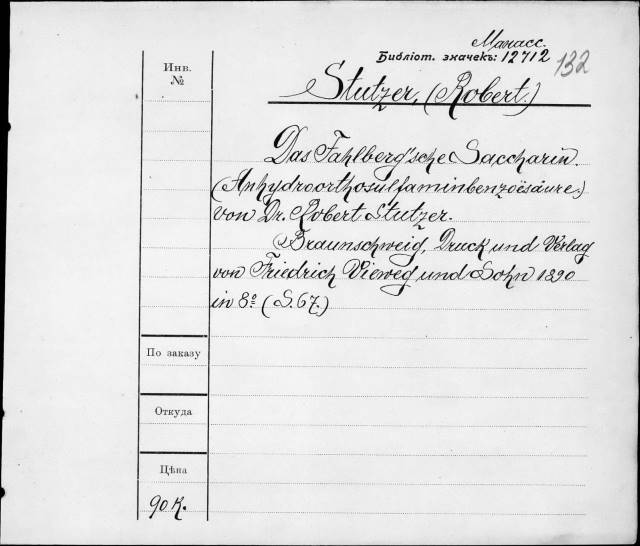 Манасс.
Библіот. значекъ: 12712
132
Инв.
№
Stutzer, (Robert.)
Das Fahlberg'sche Saccharin.
(Anhydroorthosulfaminbenzoësäure.)
von Dr. Robert Stutzer.
Braunschweig, Druck und Verlag
von Friedrich Vieweg und Sohn 1890
in 8º (S. 67.)
По заказу
Откуда
Цѣна
90 К.